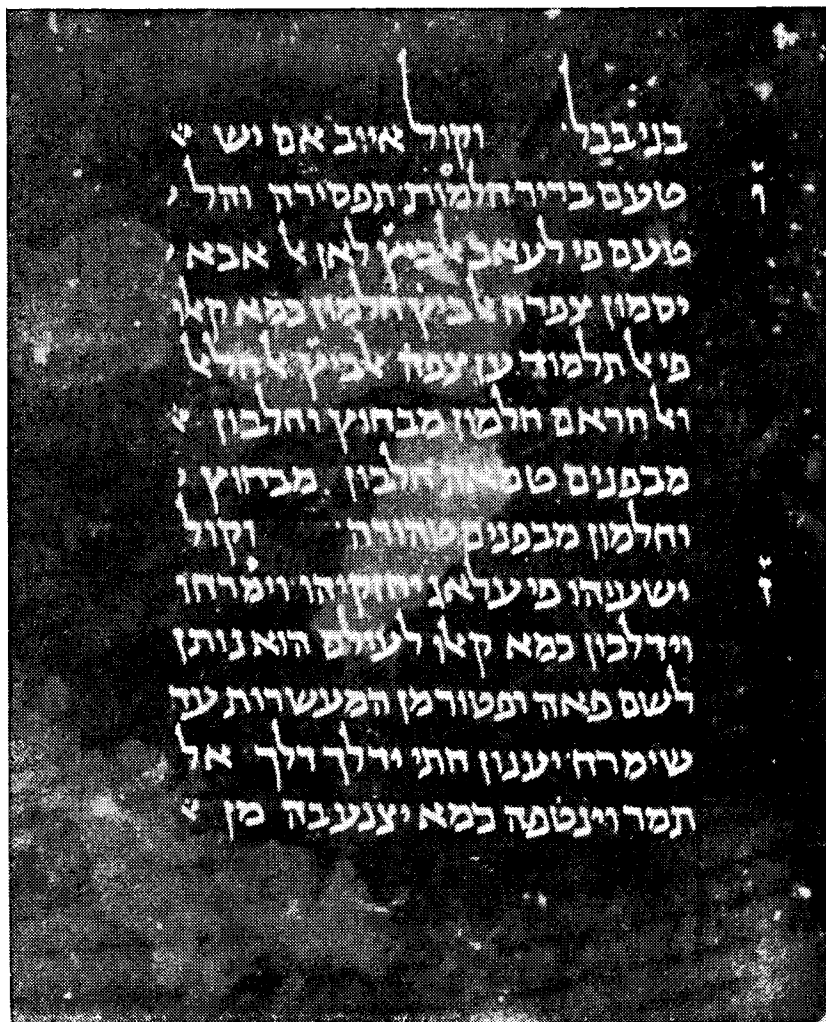 בני בבל וקול איוב אם יש
ו
טעם בריר חלמות תפסירה והל
טעם פי לעאב ﭏביץ לאן ﭏ אבא
יסמון צפרה ﭏביץ חלמון כמא קﭏו
פי ﭏתלמוד ען צפה ﭏביץ ﭏחלﭏ
וﭏחראם חלמון מבחוץ וחלבון
מבפנים טמאות חלבון מבחוץ
וחלמון מבפנים טהורה וקול
ז
ישעיהו פי עלאג יחזקיהו וימרחו
וידלכון כמא קאן לעולם הוא נותן
לשם פאה ופטור מן המעשרות עד
שימרח יענון חתי ידלך דלך אל
תמר וינטפה כמא יצנע בה מן